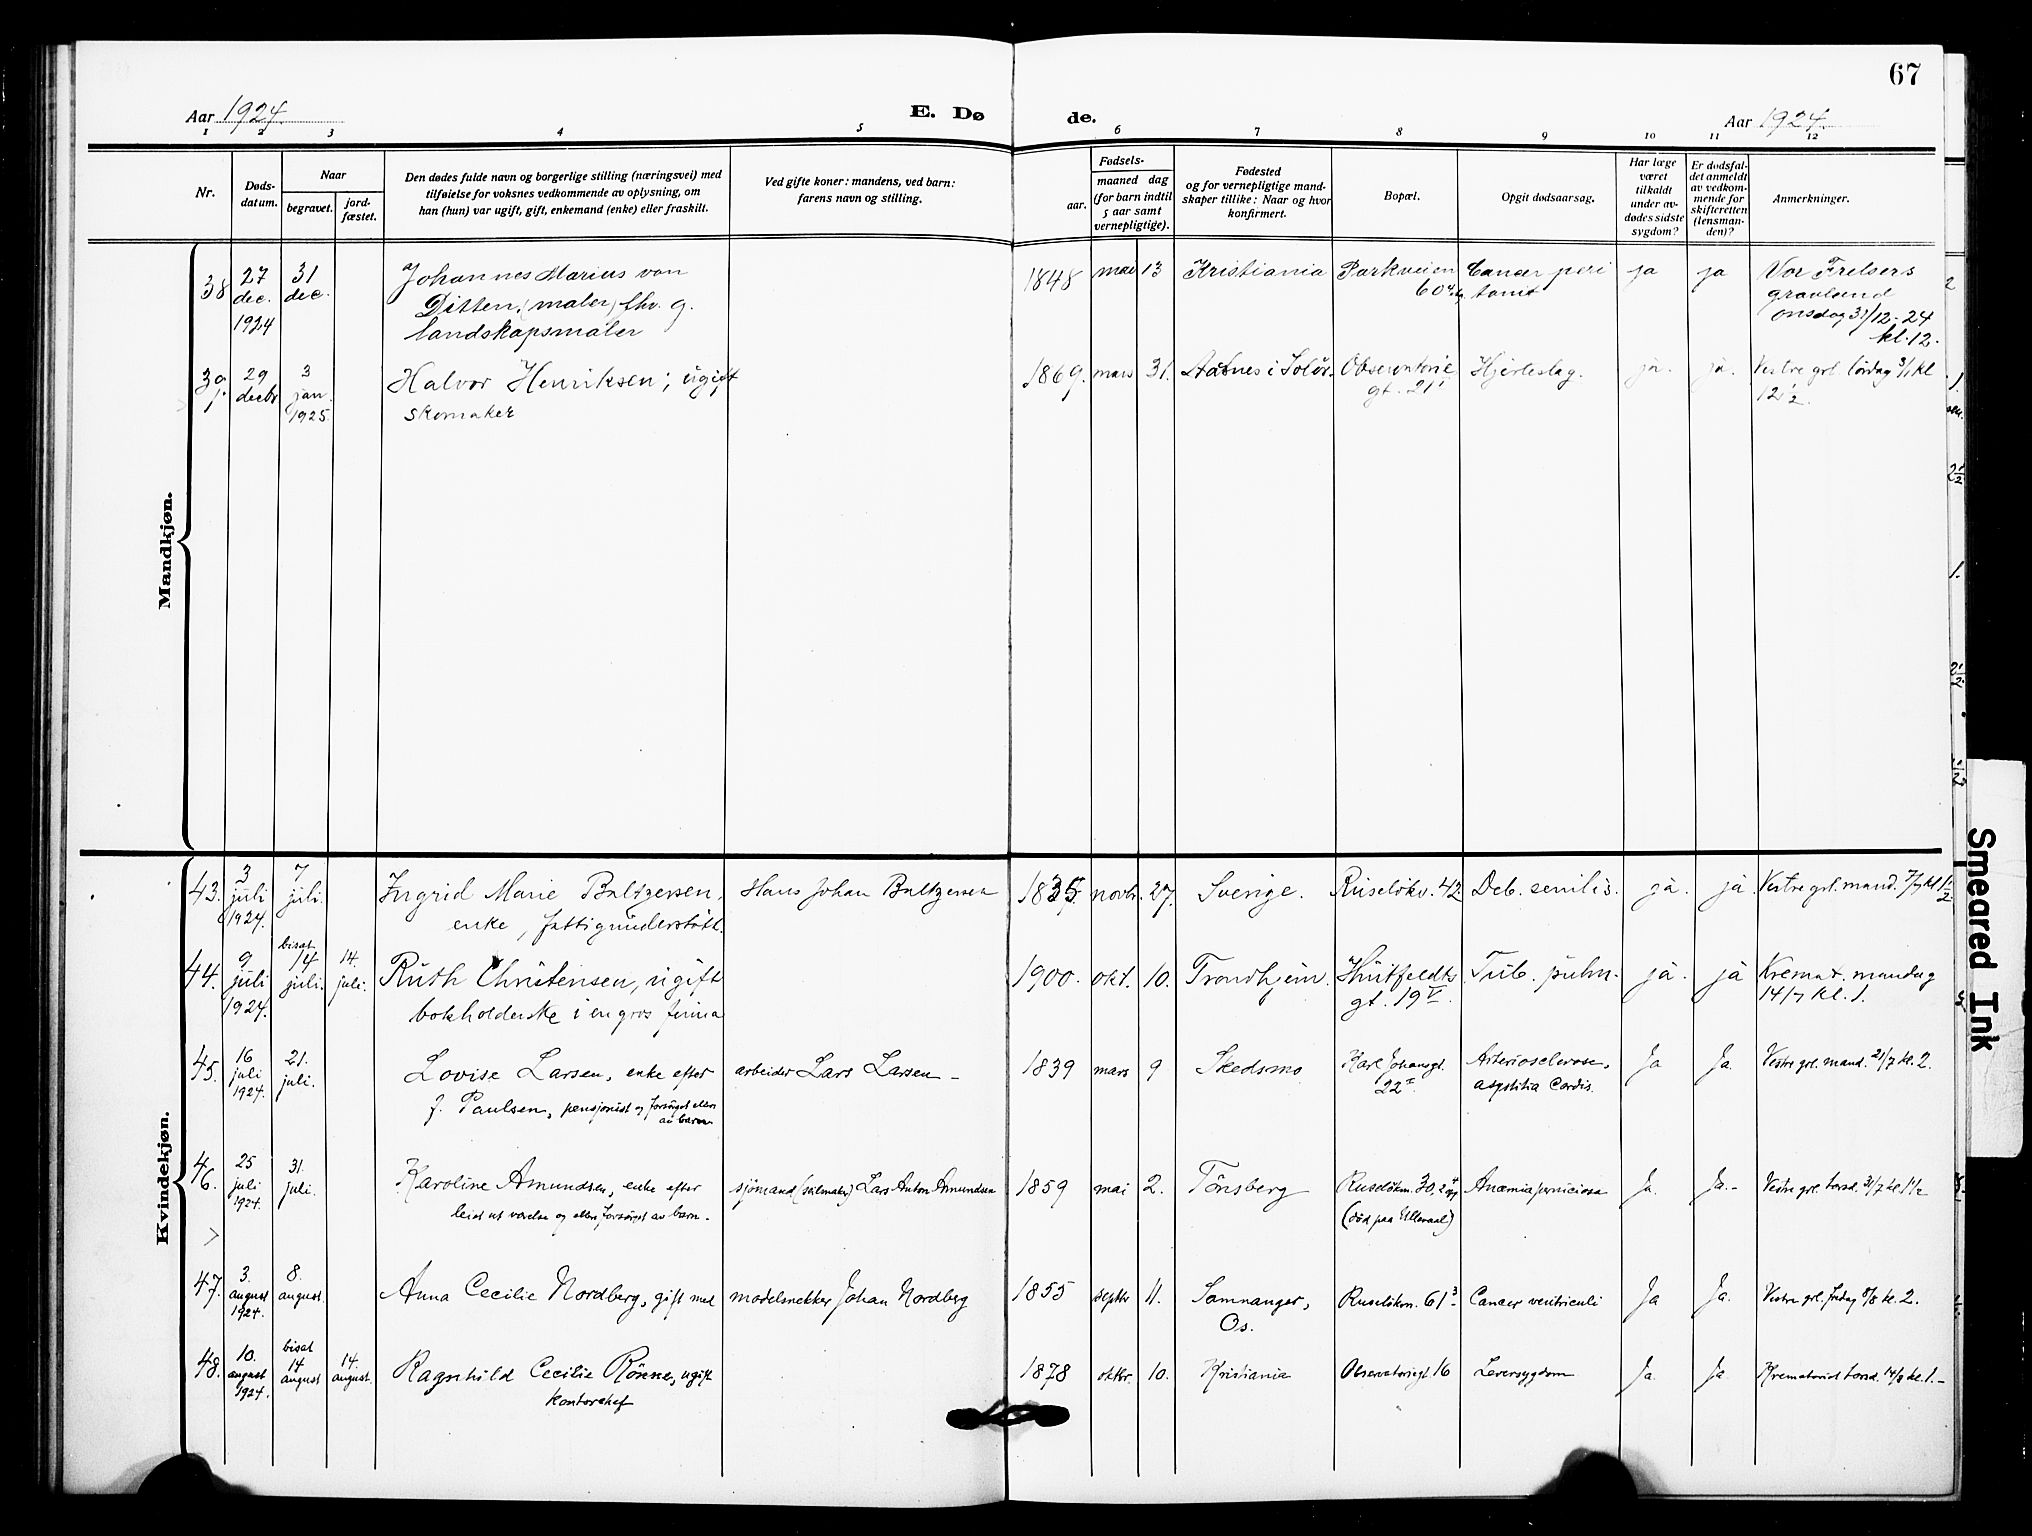 67
Aar 1924.
E. Dø
de.
Aar 1924.
1 2 3 4 5 6 7 8 9 10 11 12
Nr.
Døds-
datum.
Naar
begravet.
jord-
fæstet.
Den dødes fulde navn og borgerlige stilling (næringsvei) med
tilføielse for voksnes vedkommende av oplysning, om
han (hun) var ugift, gift, enkemand (enke) eller fraskilt.
Ved gifte koner: mandens, ved barn:
farens navn og stilling.
Fødsels-
aar.
maaned dag
(for barn indtil
5 aar samt
vernepligtige).
Fødested
og for vernepligtige mand-
skaper tillike: Naar og hvor
konfirmert.
Bopæl.
Opgit dødsaarsag.
Har læge
været
tilkaldt
under av-
dødes sidste
sygdom?
Er dødsfal-
det anmeldt
av vedkom-
mende for
skifteretten
(lensman-
den)?
Anmerkninger.
Mandkjøn.
38 27 dec. 1924 31 dec.
Johannes Marius von
Ditten, (maler) fhv. g.
landskapsmaler
1848 mai 13 Kristiania
Parkveien
60
Cancer peri
tonit
ja ja
Vor Frelsers
gravlund
onsdag 31/12-24
kl. 12.
39 29 decbr 3 jan. 1925.
Halvor Henriksen; ugift
skomaker
1869. mars 31. Aasnes i Solør.
Observatorie
gt. 21
Hjerteslag.
ja. ja.
Vestre grl. lördag 3/1 kl
12 1/2.
Kvindekjøn.
43. 3 juli 1924. 7 juli.
Ingrid Marie Baltzersen,
enke, fattigunderstött.
Hans Johan Baltzersen
1835. novbr. 27. Sverige. Ruselökv. 42 Deb. senilis. ja. ja.
Vestre grl. mand. 7/7 kl 1 1/2
44. 9 juli 1924. bisat 14 juli. 14. juli.
Ruth Christensen, ugift
bokholderske i en gros firma
1900. okt. 10. Trondhjem.
Huitfeldts
gt. 19 V.
Tub. pulm. ja. ja
Kremat. mandag
14/7 kl. 1.
45. 16 juli 1924. 21. juli.
Lovise Larsen, enke efter
f. Paulsen, pensjonist og forsörget ellers
av barna
arbeider Lars Larsen -
1839 mars 9 Skedsmo
Karl Johansgt.
22 II
Arteriosclerose,
Cordis.
Ja Ja.
Vestre grl. mand. 21/7 kl. 2.
46. 25 juli 1924. 31. juli.
Karoline Amundsen, enke efter
leiet ut værelse og ellers forsörget av barn.
sjömand (seilmaker) Lars Anton Amundsen
1859 mai 2. Tönsberg
Ruselökvn. 30,
(död paa Ullevaal)
Anæmia perniciosa
Ja. Ja.-
Vestre grl. torsd. 31/7 kl. 1 1/2
47. 3. august 1924. 8. august.
Anna Cecilie Nordberg, gift med
modelsnekker Johan Nordberg
1855 septbr 11.
Samnanger,
Os.
Ruselökvn. 61 3 Cancer ventriculi
Ja Ja.
Vestre grl. fredag 8/8 kl. 2.
48. 10. august 1924. bisat 14 august 14. august.
Ragnhild Cecilie Rönne, ugift
kontorchef
1878 oktbr. 10. Kristiania Observatoriegt. 16 Leversygdom
Ja. Ja.
Krematoriet torsd. 14/8 kl. 1.-
Smeared Ink